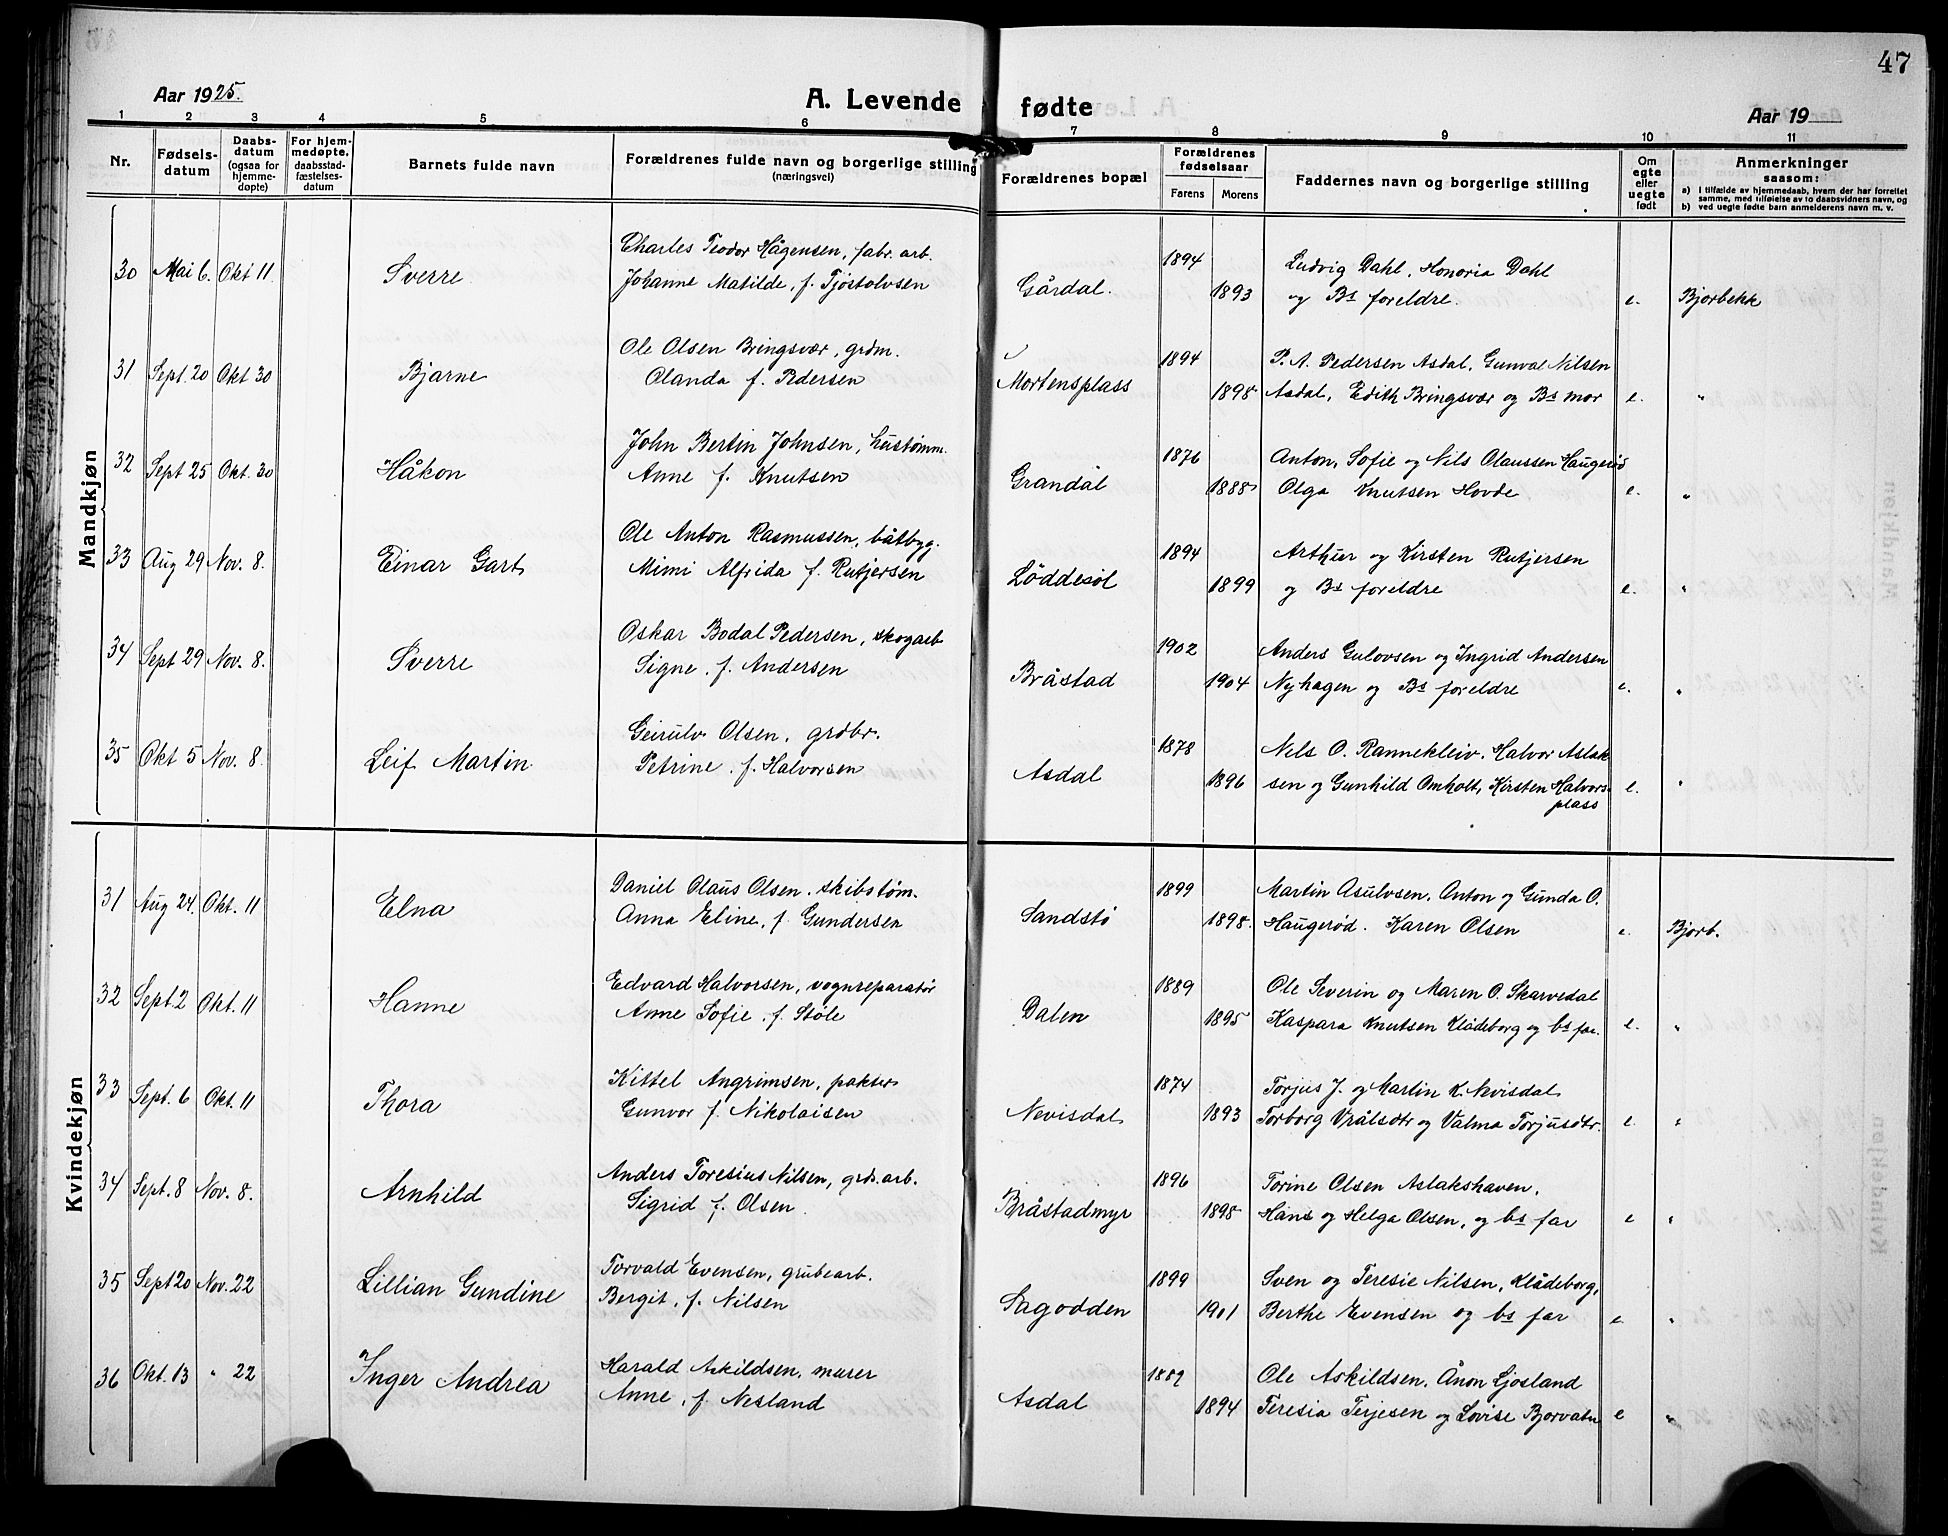 47
Aar 1925.
A. Levende fødte
Aar 19
1 2 3 4 5 6 7 8 9 10 11
Nr.
Fødsels-datum
Daabs-datum (ogsaa for hjemme-døpte)
For hjem-medøpte, daabsstad-fæstelses-datum
Barnets fulde navn
Forældrenes fulde navn og borgerlige stilling (næringsvei)
Forældrenes bopæl
Forældrenes fødselsaar
Farens Morens
Faddernes navn og borgerlige stilling
Om egte eller uegte født
Anmerkninger saasom:
a) I tilfælde av hjemmedaab, hvem der har forrettet samme, med tilføielse av to daabsvidners navn, og
b) ved uegte fødte barn anmelderens navn m. v.
Mandkjøn
Charles Teodor Hågensen, fabr. arb. 1894 Ludvig Dahl, Honoria Dahl
30 Mai 6. Okt 11. Sverre Johanne Matilde, f. Tjøstolvsen Gårdal. 1893 og Bs foreldre. e. Bjorbekk
Ole Olsen Bringsvær, grdm. 1894 P. A. Pedersen Asdal, Gunval Nilsen
31 Sept. 20 Okt 30 Bjarne Olanda f. Pedersen Mortensplass 1898. Asdal, Edith Bringsvær og Bs mor e. "
John Bertin Johnsen, hustømm. 1876 Anton, Sofie og Nils Olaussen Haugerød
32 Sept 25 Okt. 30 Håkon Anne f. Knutsen Grandal 1888 Olga Knutsen Hovde e. "
Ole Anton Rasmussen, båtbyg. 1894 Arthur og Kirsten Rutjersen
33 Aug 29 Nov. 8. Einar Gart Mimi Alfrida f. Rutjersen Løddesøl 1899 og Bs foreldre e. "
Oskar Bodal Pedersen, skogarb 1902 Anders Gulovsen og Ingrid Andersen
34 Sept 29 Nov. 8. Sverre Signe, f. Andersen Bråstad 1904 Nyhagen og Bs foreldre e. "
Geirulv Olsen, grdbr. 1878 Nels O. Rannekleiv, Halvor Aslak
35 Okt 5 Nov. 8. Leif Martin Petrine, f. Halvorsen Asdal 1896 sen og Gunhild Omholt, Kirsten Halvors-
plass e. "
Kvindekjøn
Daniel Olaus Olsen, skibstøm. 1899 Martin Asulvsen, Anton og Gunda O.
31 Aug 24. Okt. 11 Elna Anna Eline, f. Gundersen Sandstø 1898. Haugerød. Karen Olsen e. Bjorb.
Edvard Halvorsen, vognreparatør 1889 Ole Severin og Maren O. Skarvedal
32 Sept. 2 Okt. 11 Hanne Anne Sofie, f. Støle Dalen 1895 Kaspara Knutsen Klådeborg og bs far. e. "
Kittel Angrimsen, pakter 1874 Torjus J. og Martin K. Nevisdal
33 Sept. 6 Okt. 11 Thora Gunvor f. Nikolaisen Nevisdal 1893 Torborg Vrålsdtr og Valma Torjusdtr. e. "
Anders Toresius Nilsen, grds. arb. 1896 Torine Olsen Aslakshaven,
34 Sept. 8 Nov. 8. Arnhild Sigrid f. Olsen. Bråstadmyr 1898 Hans og Helga Olsen, og bs far e "
Torvald Evensen, grubearb. 1899 Sven og Teresie Nilsen, Klådeborg,
35 Sept 20 Nov. 22 Lillian Gundine Bergit, f. Nilsen Sagodden 1901 Berthe Evensen og bs far e "
Harald Askildsen, murer 1889 Ole Askildsen, Ånon Ljosland
36 Okt. 13 " 22 Inger Andrea Anne, f. Nesland Asdal 1894 Teresia Terjesen og Lovise Bjorvatn e "